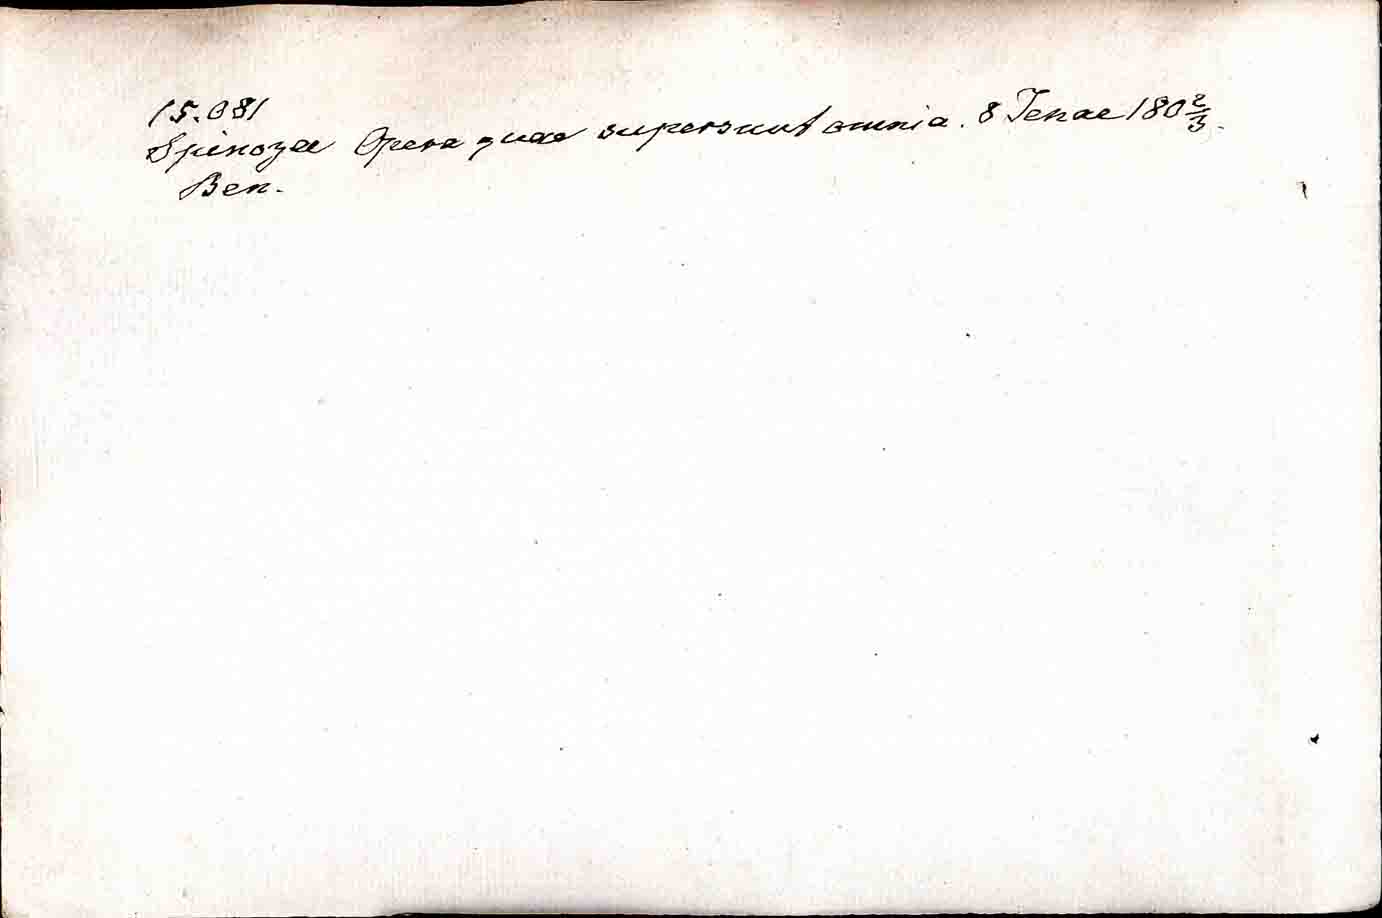 15.081
Spinozae Opera quae supersunt omnia. 8 Jenae 180 2/3.
Ben.